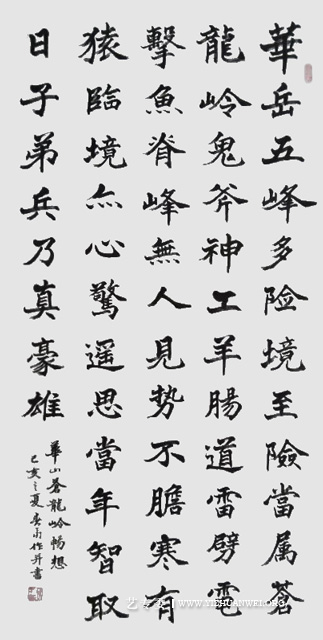 華岳五峰多险境至險當属蒼
龍岭鬼斧神工羊腸道雷劈電
擊魚脊峰無人見势不膽寒有
猿臨境亦心驚遥思當年智取
日子弟兵乃真豪雄
華山蒼龍岭暢想
己亥之夏作并書